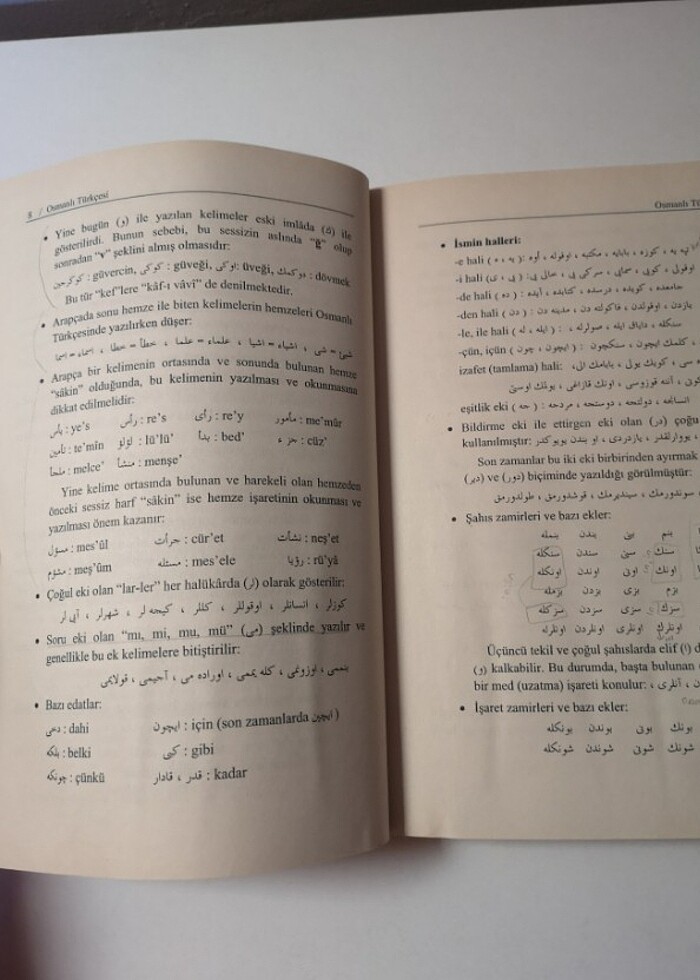 8 / Osmanlı Türkçesi
• Yine bugün (و) ile yazılan kelimeler eski imlâda (ك) ile
gösterilirdi. Bunun sebebi, bu sessizin aslında "ğ" olup
sonradan "v" şeklini almış olmasıdır:
كوكرجين : güvercin, كوكى : güveği, اوكى : üveği, دوكمك : dövmek
Bu tür "kef"lere "kâf-ı vâvî" de denilmektedir.
• Arapçada sonu hemze ile biten kelimelerin hemzeleri Osmanlı
Türkçesinde yazılırken düşer:
شئ = شى ، اشياء = اشيا ، علماء = علما ، خطأ = خطا
• Arapça bir kelimenin ortasında ve sonunda bulunan hemze
"sâkin" olduğunda, bu kelimenin yazılması ve okunmasına
dikkat edilmelidir:
يأس : ye's رأس : re's رأى : re'y مأمور : me'mûr
تأمين : te'mîn لؤلؤ : lü'lü' بدأ : bed' جزء : cüz'
ملجأ : melce' منشأ : menşe'
Yine kelime ortasında bulunan ve harekeli olan hemzeden
önceki sessiz harf "sâkin" ise hemze işaretinin okunması ve
yazılması önem kazanır:
مسؤل : mes'ûl جرأت : cür'et نشأت : neş'et
مشؤم : meş'ûm مسئله : mes'ele رؤيا : rü'yâ
• Çoğul eki olan "lar-ler" her halükârda (لر) olarak gösterilir:
كوزلر ، انسانلر ، اوقوللر ، كللر ، كيجه لر ، شهرلر ، آيى لر
• Soru eki olan "mı, mi, mu, mü" (مى) şeklinde yazılır ve
genellikle bu ek kelimelere bitiştirilir:
بنممى ، اوزونمى ، كله يممى ، اوراده مى ، آجيمى ، قولايمى
• Bazı edatlar:
دخى : dahi ايچون : için (son zamanlarda ايچين)
بلكه : belki كبى : gibi
چونكه : çünkü قدر ، قادار : kadar
Osmanlı
• İsmin halleri:
-e hali ( يه ، ه ) : كوزه ، بابايه ، مكتبه ، اوقوله ، أوه
-i hali
-de hali ( ده ) : كويده ، درسده ، كتابده ، آيده
-den hali ( دن ) : يازدن ، اوقولدن ، فاكولته دن ، مدينه دن
-le, ile hali ( ايله ، له ) :
-çün, için ( ايچون ، چون ) : سنكچون ، كلمك ايچون
izafet (tamlama) hali:
eşitlik eki ( جه ) : انسانجه ، دولتجه ، دوستجه ، مردجه
• Bildirme eki ile ettirgen eki olan (در) çoğu
kullanılmıştır:
Son zamanlar bu iki eki birbirinden ayırmak
(دير) ve (دور) biçiminde yazıldığı görülmüştür:
سوندورمك ، سينديرمك ، قوشدورمق ، طولدورمق
• Şahıs zamirleri ve bazı ekler:
بنم بنى بندن بنمله
سنك سنى سندن سنكله
اونك اونى اوندن اونكله
بزم بزى بزدن بزمله
سزك سزى سزدن سزكله
اونلرك اونلرى اونلردن اونلرله
Üçüncü tekil ve çoğul şahıslarda elif (ا)
(و) kalkabilir. Bu durumda, başta bulunan
bir med (uzatma) işareti konulur:
• İşaret zamirleri ve bazı ekler:
بونك بونى بوندن بونكله
شونك شونى شوندن شونكله